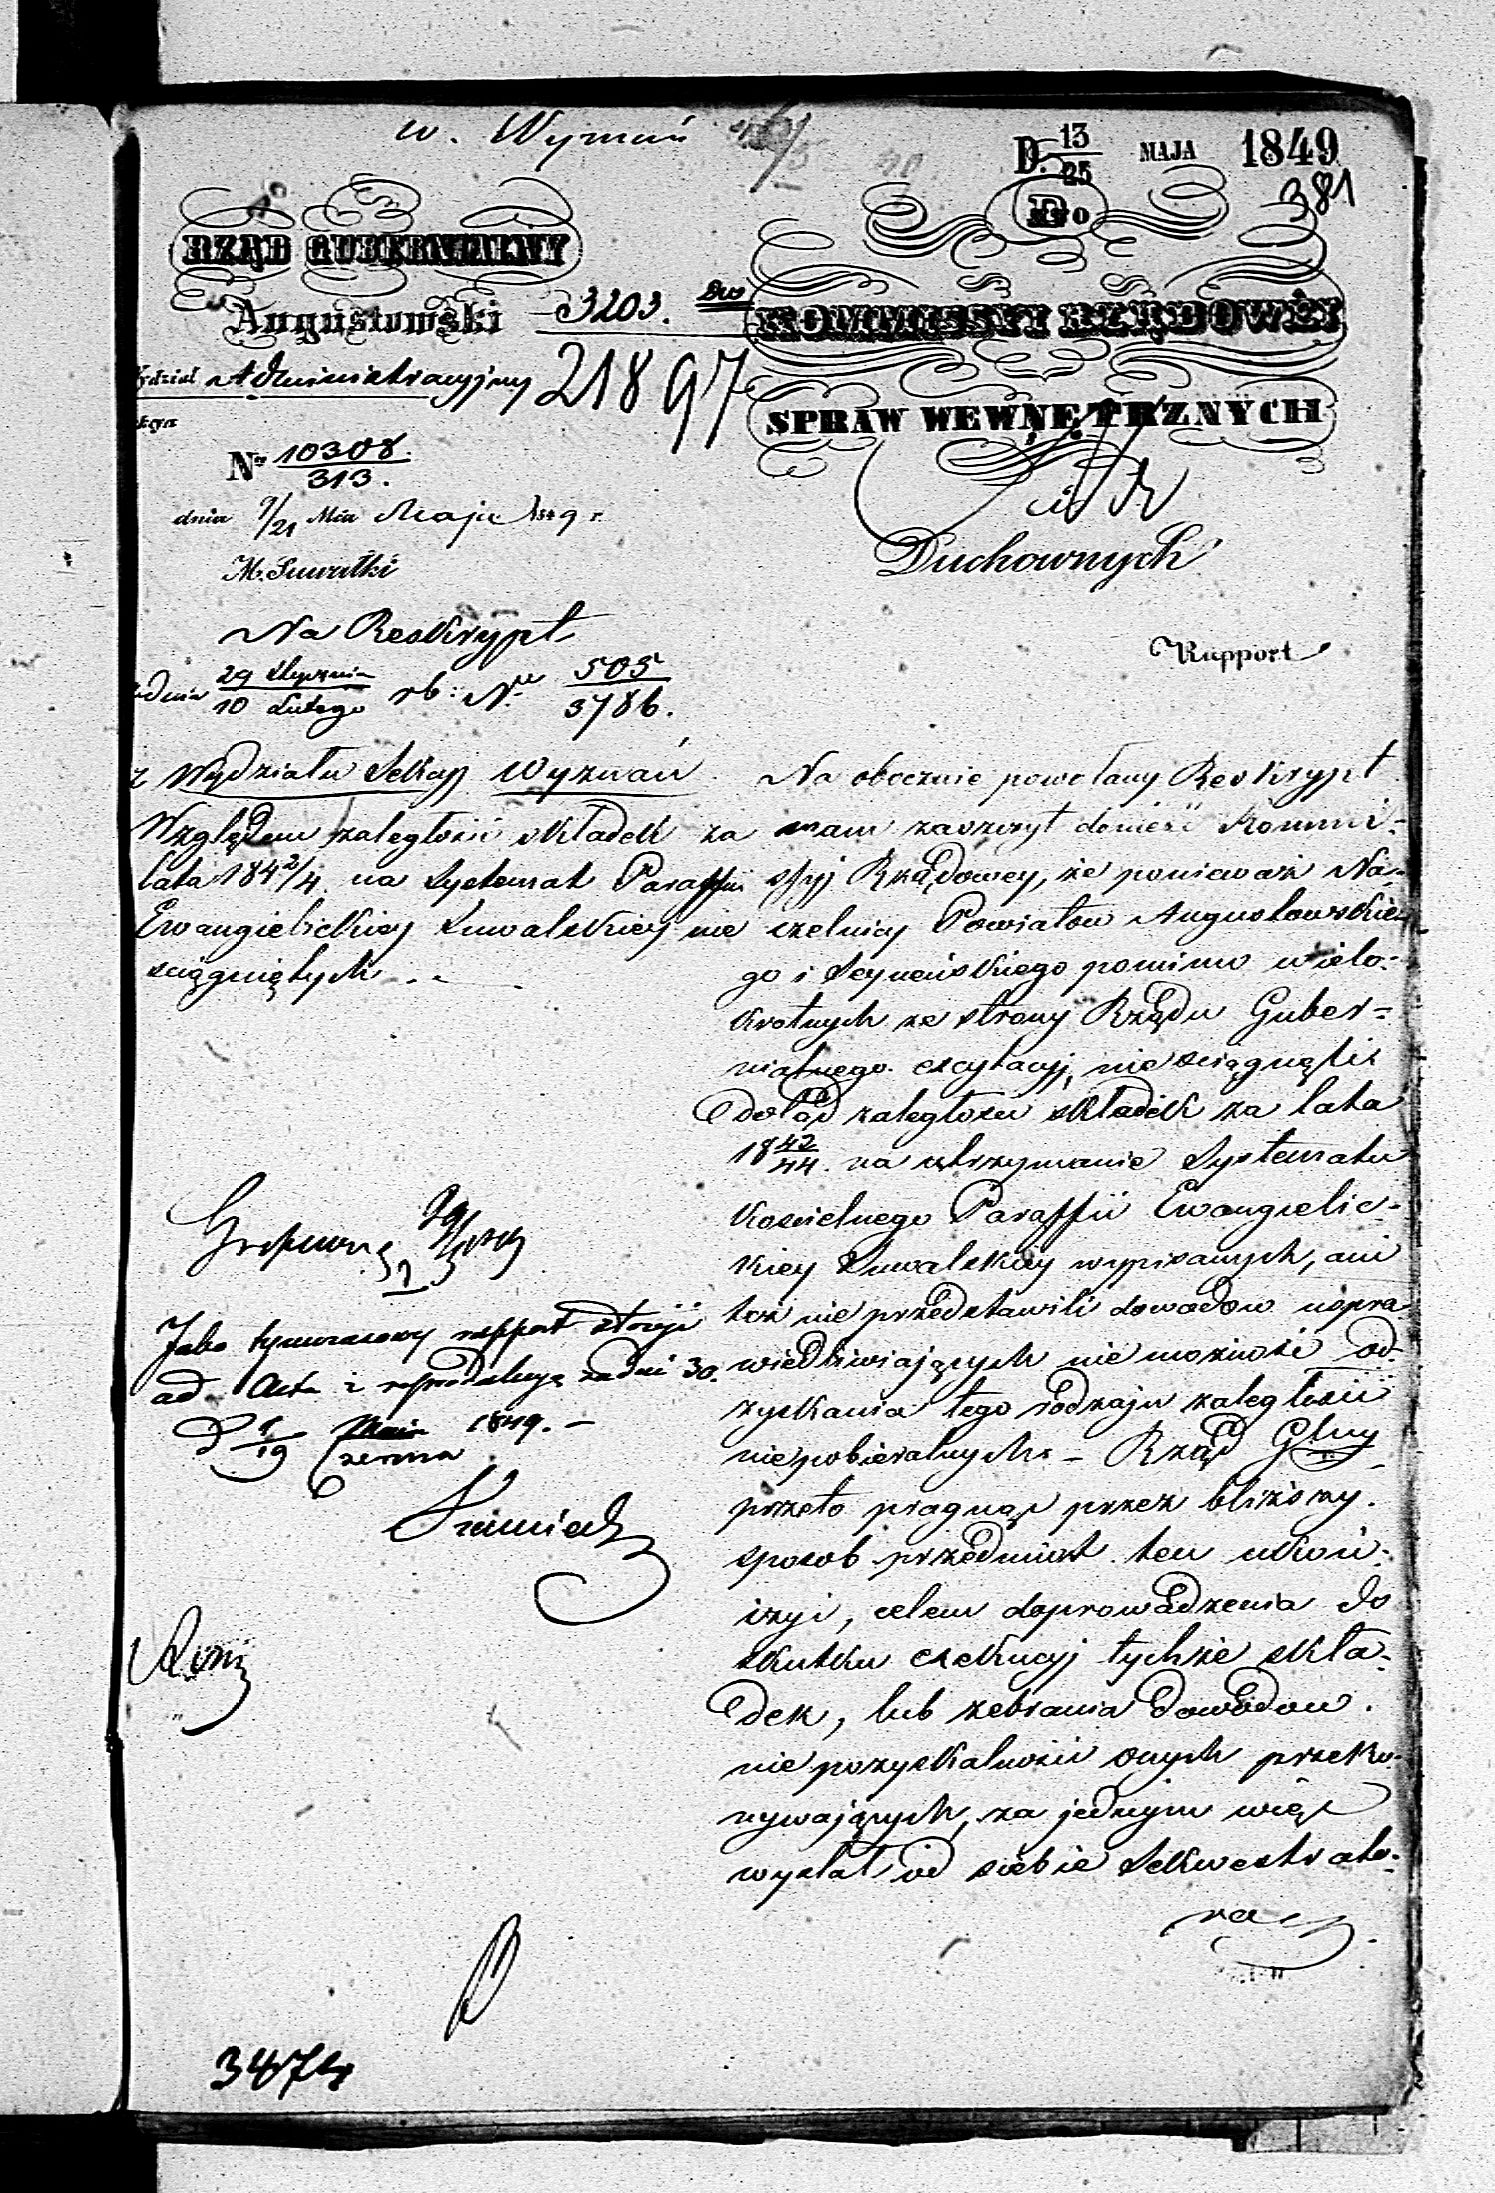 w. Wyznań
D. 13/25 MAJA 1849
381
RZĄD GUBERNIALNY
Augustowski
Wydział Administracyjny
Nro 10308/313.
dnia 9/21 Mca Maja 1849 r.
M. Suwałki
3203.
21897
Do
KOMMISSYI RZĄDOWÉY
SPRAW WEWNĘTRZNYCH
i
Duchownych
Rapport
Na Reskrypt
z dnia 29 Stycznia/10 Lutego rb: Nr 505/3786.
z Wydziału Sekcyj Wyznań
Względem zaległości składek za
lata 184 2/4 na Systemat Paraffii
Ewangielickiey Suwalskiey nie
ściągniętych.
Na obocznie powołany Reskrypt
mam zaszczyt donieść Kommi-
ssyj Rządowey, że ponieważ Na-
czelnicy Powiatów Augustowskie-
go i Seyneńskiego pomimo wielo-
krotnych ze strony Rządu Guber-
nialnego excytacyj, nie ściągnęli
dotąd zaległości składek za lata
18 42/44. na utrzymanie Systematu
Kościelnego Paraffii Ewangielic-
kiey Suwalskiey wypisanych, ani
też nie przedstawili dowodów uspra
wiedliwiających nie możność od-
zyskania tego rodzaju zaległości
niepobieralnych. – Rząd Glny
przeto pragnąc przez bliższy
sposob przedmiot ten ukoń-
czyć, celem doprowadzenia do
skutku exekucyj tychże skła-
dek, lub zebrania dowodow
niepozyskalności onych przeko-
nywających, za jednym więc
wysłał od siebie Sekwestrato-
ra
Jako tymczasowy rapport złożyć
ad Acta i reprodukcyą za dni 30.
D 1/19 Czerwca 1849. –
3474